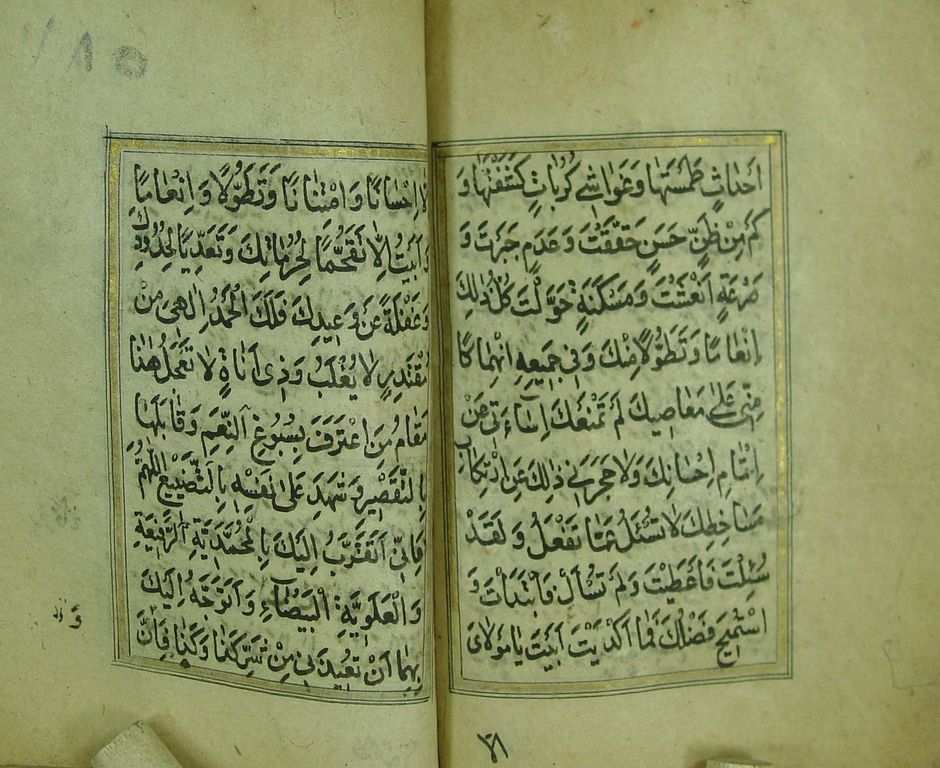 اَحْداثٍ طَمَسْتَها وَغَواشِيَ كُرُباتٍ كَشَفْتَها وَ
كَمْ مِنْ ظَنٍّ حَسَنٍ حَقَّقْتَ وَعَدَمٍ جَبَرْتَ وَ
صَرْعَةٍ اَنْعَشْتَ وَمَسْكَنَةٍ حَوَّلْتَ كُلُّ ذٰلِكَ
اِنْعامًا وَتَطَوُّلًا مِنْكَ وَفي جَميعِهِ انْهِماكًا
مِنّي عَلى مَعاصيكَ لَمْ تَمْنَعْكَ اِساءَتي عَنْ
اِتْمامِ اِحْسانِكَ وَلا حَجَرَني ذٰلِكَ عَنِ ارْتِكابِ
مَساخِطِكَ لا تُسْئَلُ عَمّا تَفْعَلُ وَلَقَدْ
سُئِلْتَ فَاَعْطَيْتَ وَلَمْ تُسْأَلْ فَابْتَدَأْتَ وَ
اسْتُميحَ فَضْلُكَ فَما اَكْدَيْتَ اَبَيْتَ يا مَوْلايَ
٧١
اِلّا اِحْسانًا وَامْتِنانًا وَتَطَوُّلًا وَاِنْعامًا
وَاَبَيْتُ اِلّا تَقَحُّمًا لِحُرُماتِكَ وَتَعَدِّيًا لِحُدُودِكَ
وَغَفْلَةً عَنْ وَعيدِكَ فَلَكَ الْحَمْدُ اِلٰهي مِنْ
مُقْتَدِرٍ لا يُغْلَبُ وَذي اَناةٍ لا تَعْجَلُ هٰذا
مَقامُ مَنِ اعْتَرَفَ بِسُبُوغِ النِّعَمِ وَقابَلَها
بِالتَّقْصيرِ وَشَهِدَ عَلى نَفْسِهِ بِالتَّضْييعِ اَللّٰهُمَّ
فَاِنّي اَتَقَرَّبُ اِلَيْكَ بِالْمُحَمَّدِيَّةِ الرَّفيعَةِ
وَالْعَلَوِيَّةِ الْبَيْضاءِ وَاَتَوَجَّهُ اِلَيْكَ
بِهِما اَنْ تُعيذَني مِنْ شَرِّ كَذا وَكَذا فَاِنَّ